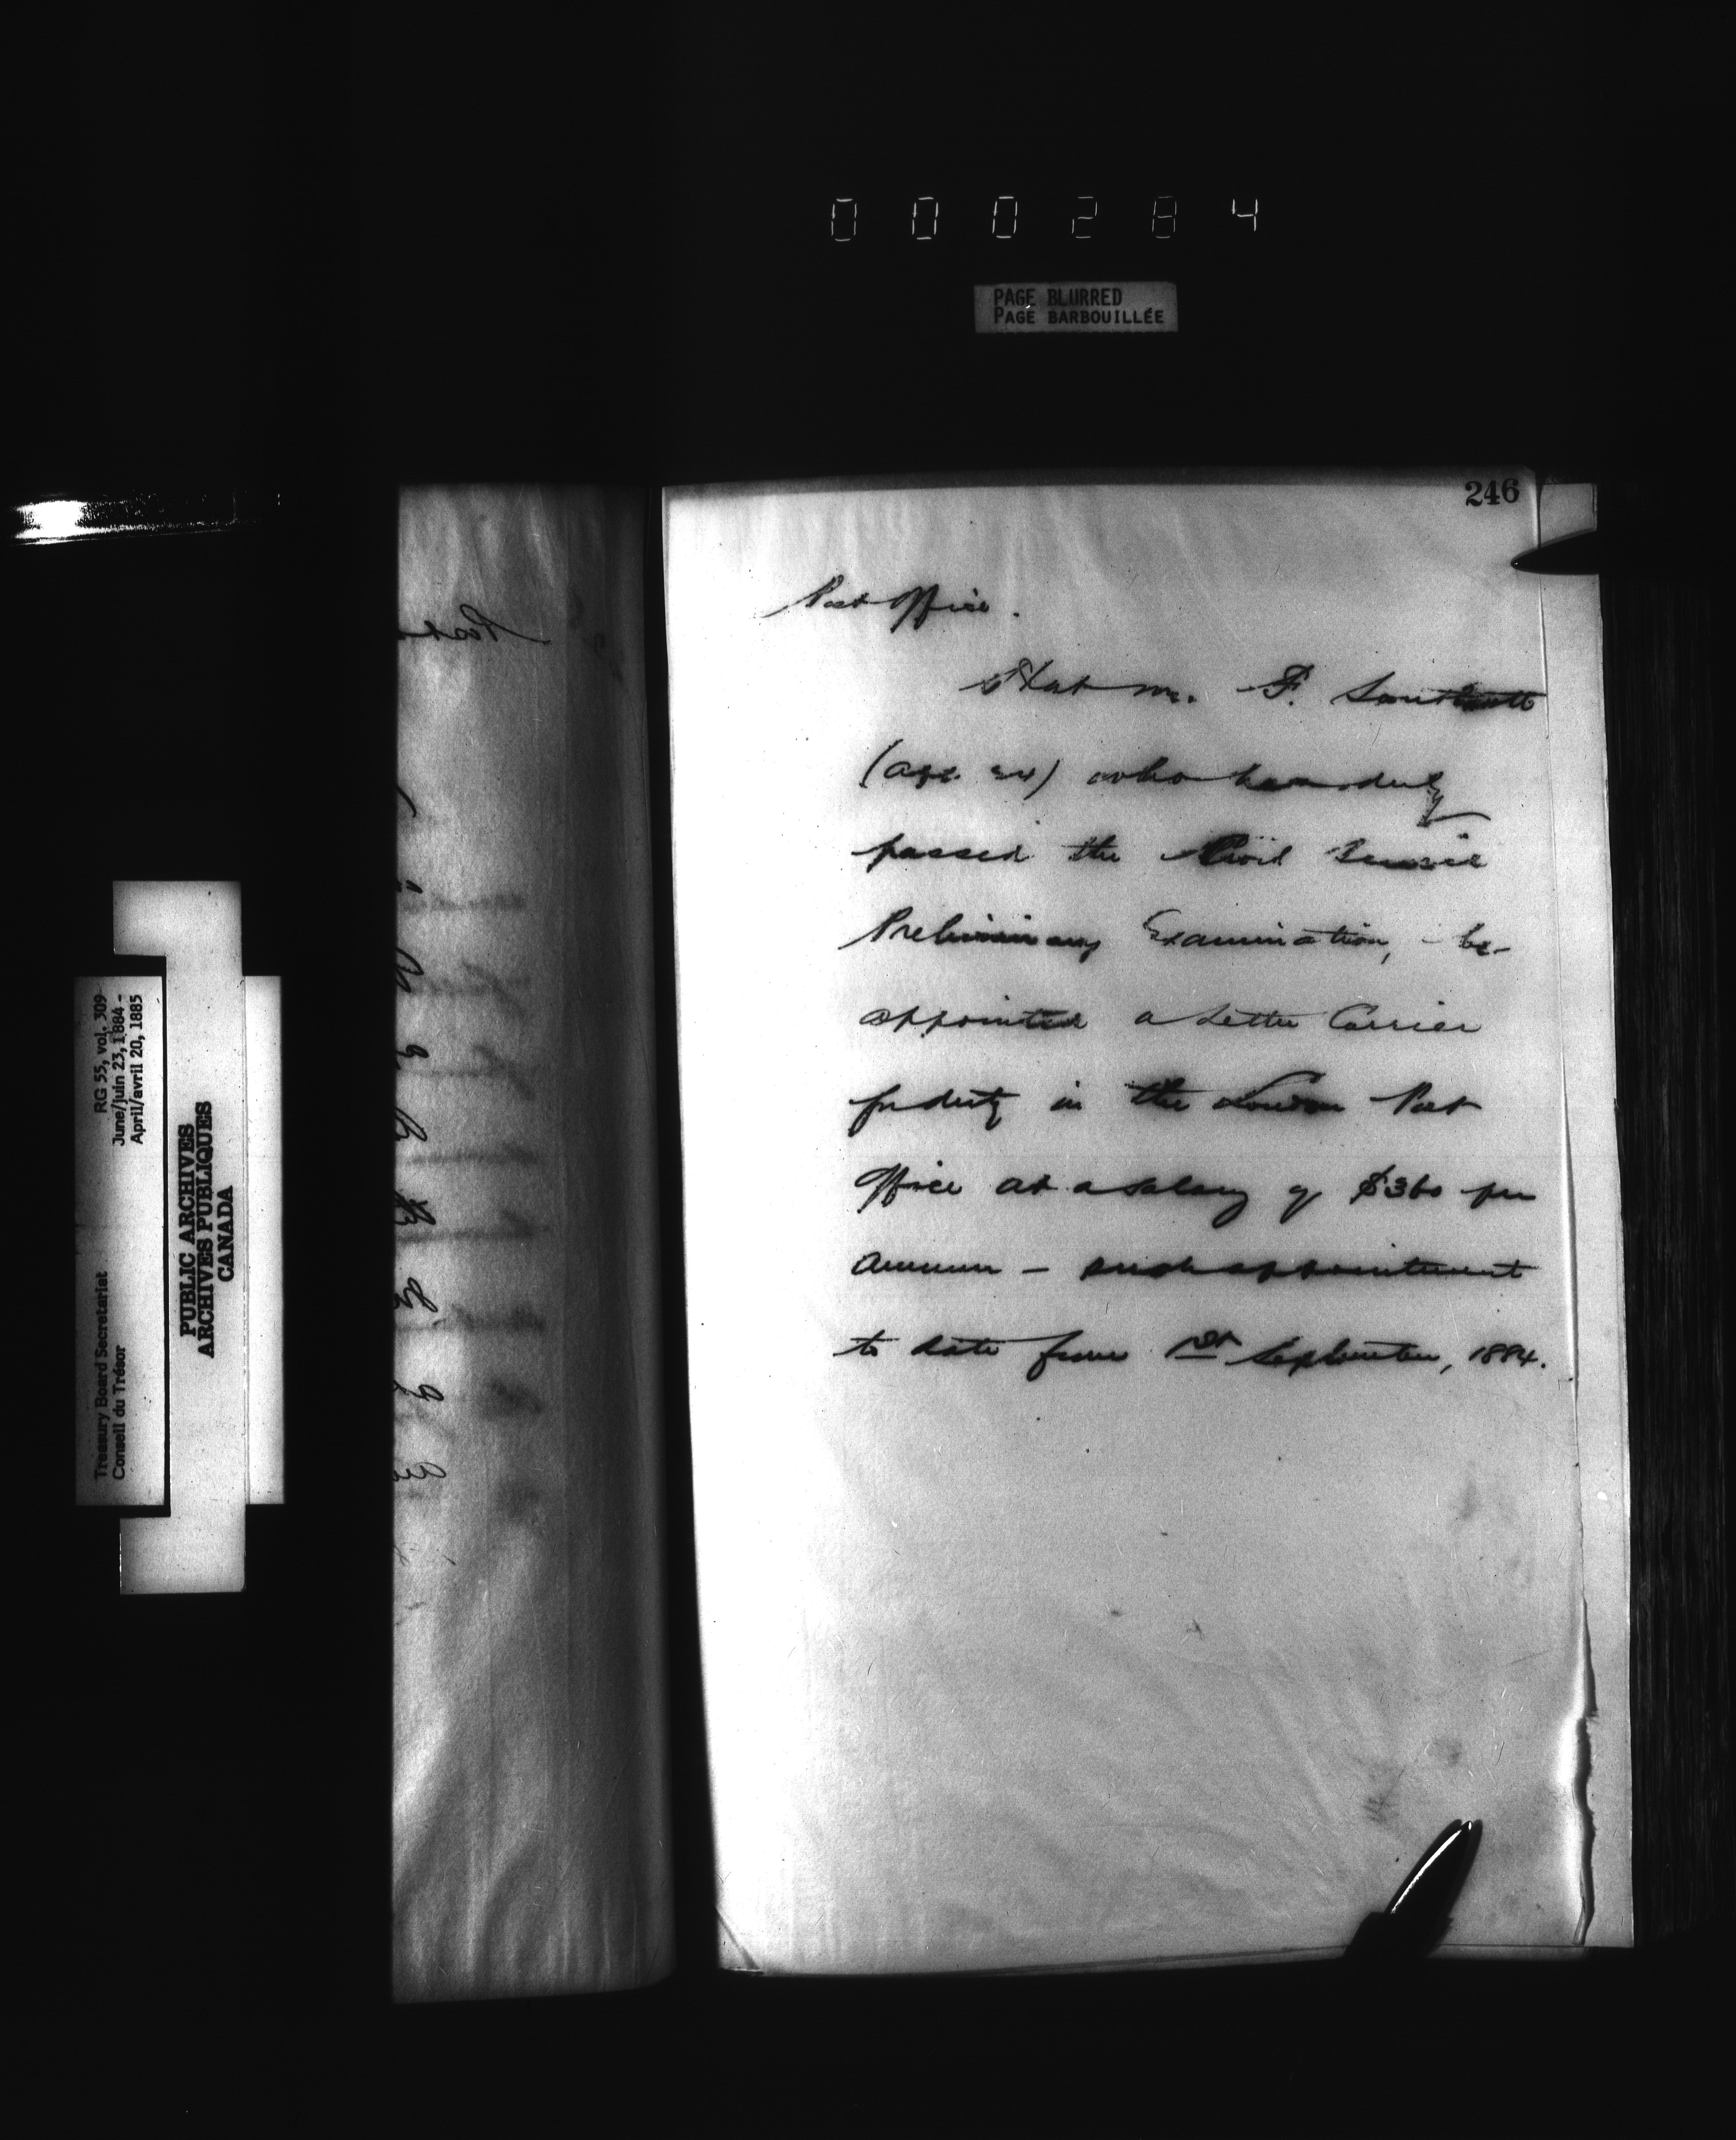 000284
PAGE BLURRED
PAGE BARBOUILLÉE
246
Post Office.
That Mr. F.
(age 24) who has duly
passed the Civil Service
Preliminary Examination, be
appointed a Letter Carrier
for duty in the London Post
Office at a salary of $360 per
annum – such appointment
to date from 1st September, 1884.
RG 55, vol. 309
June/juin 23, 1884 -
April/avril 20, 1885
Treasury Board Secretariat
Conseil du Trésor
PUBLIC ARCHIVES
ARCHIVES PUBLIQUES
CANADA